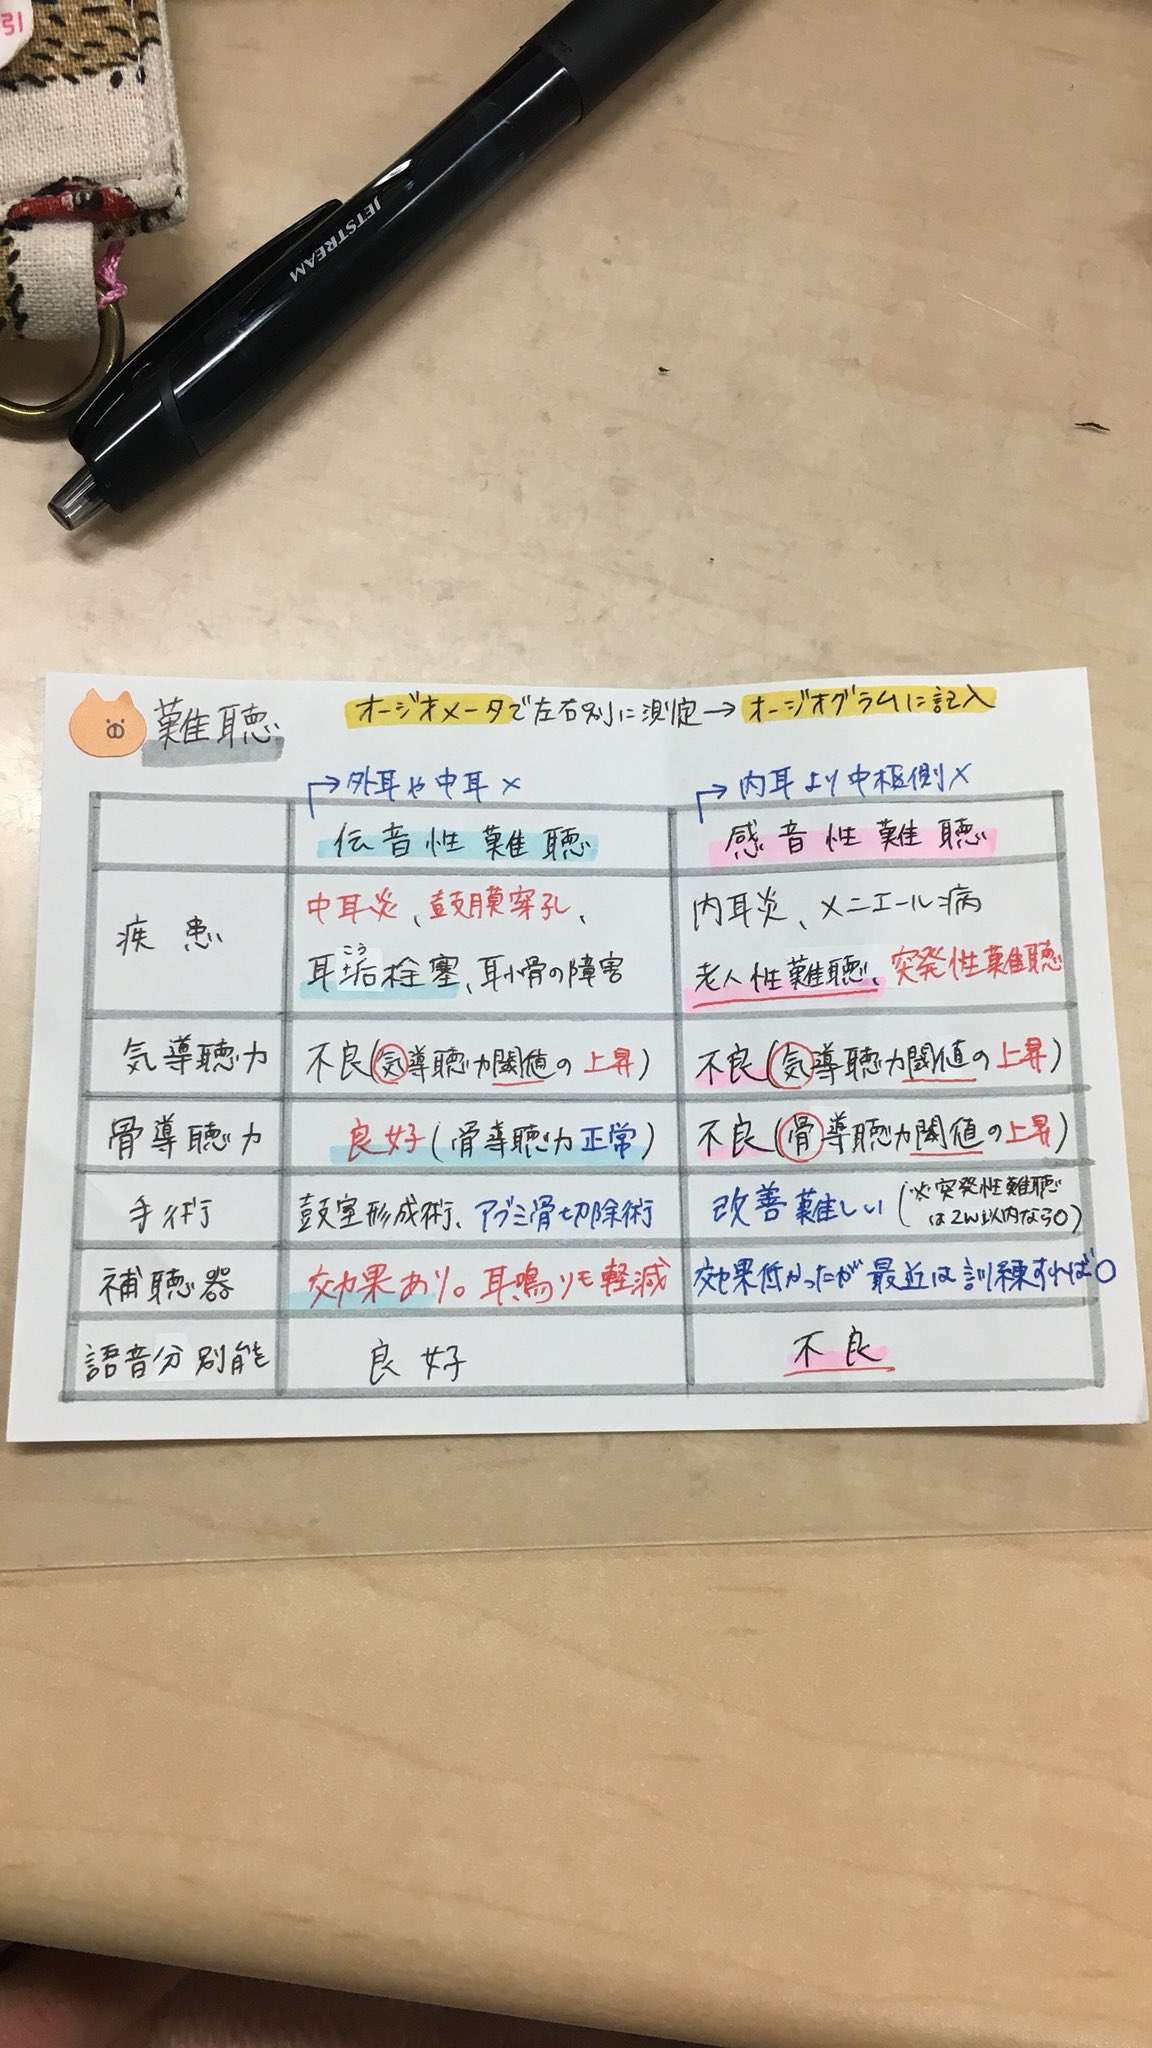 JETSTREAM
難聴
オージオメータで左右別に測定→オージオグラムに記入
→外耳や中耳×
→内耳より中枢側×
伝音性難聴
感音性難聴
疾患
中耳炎、鼓膜穿孔、
こう
耳垢栓塞、耳小骨の障害
内耳炎、メニエール病
老人性難聴、突発性難聴
気導聴力
不良(気導聴力閾値の上昇)
不良(気導聴力閾値の上昇)
骨導聴力
良好(骨導聴力正常)
不良(骨導聴力閾値の上昇)
手術
鼓室形成術、アブミ骨切除術
改善難しい(※突発性難聴
は2w以内なら○)
補聴器
効果あり。耳鳴りも軽減
効果低かったが最近は訓練すれば○
語音分別能
良好
不良